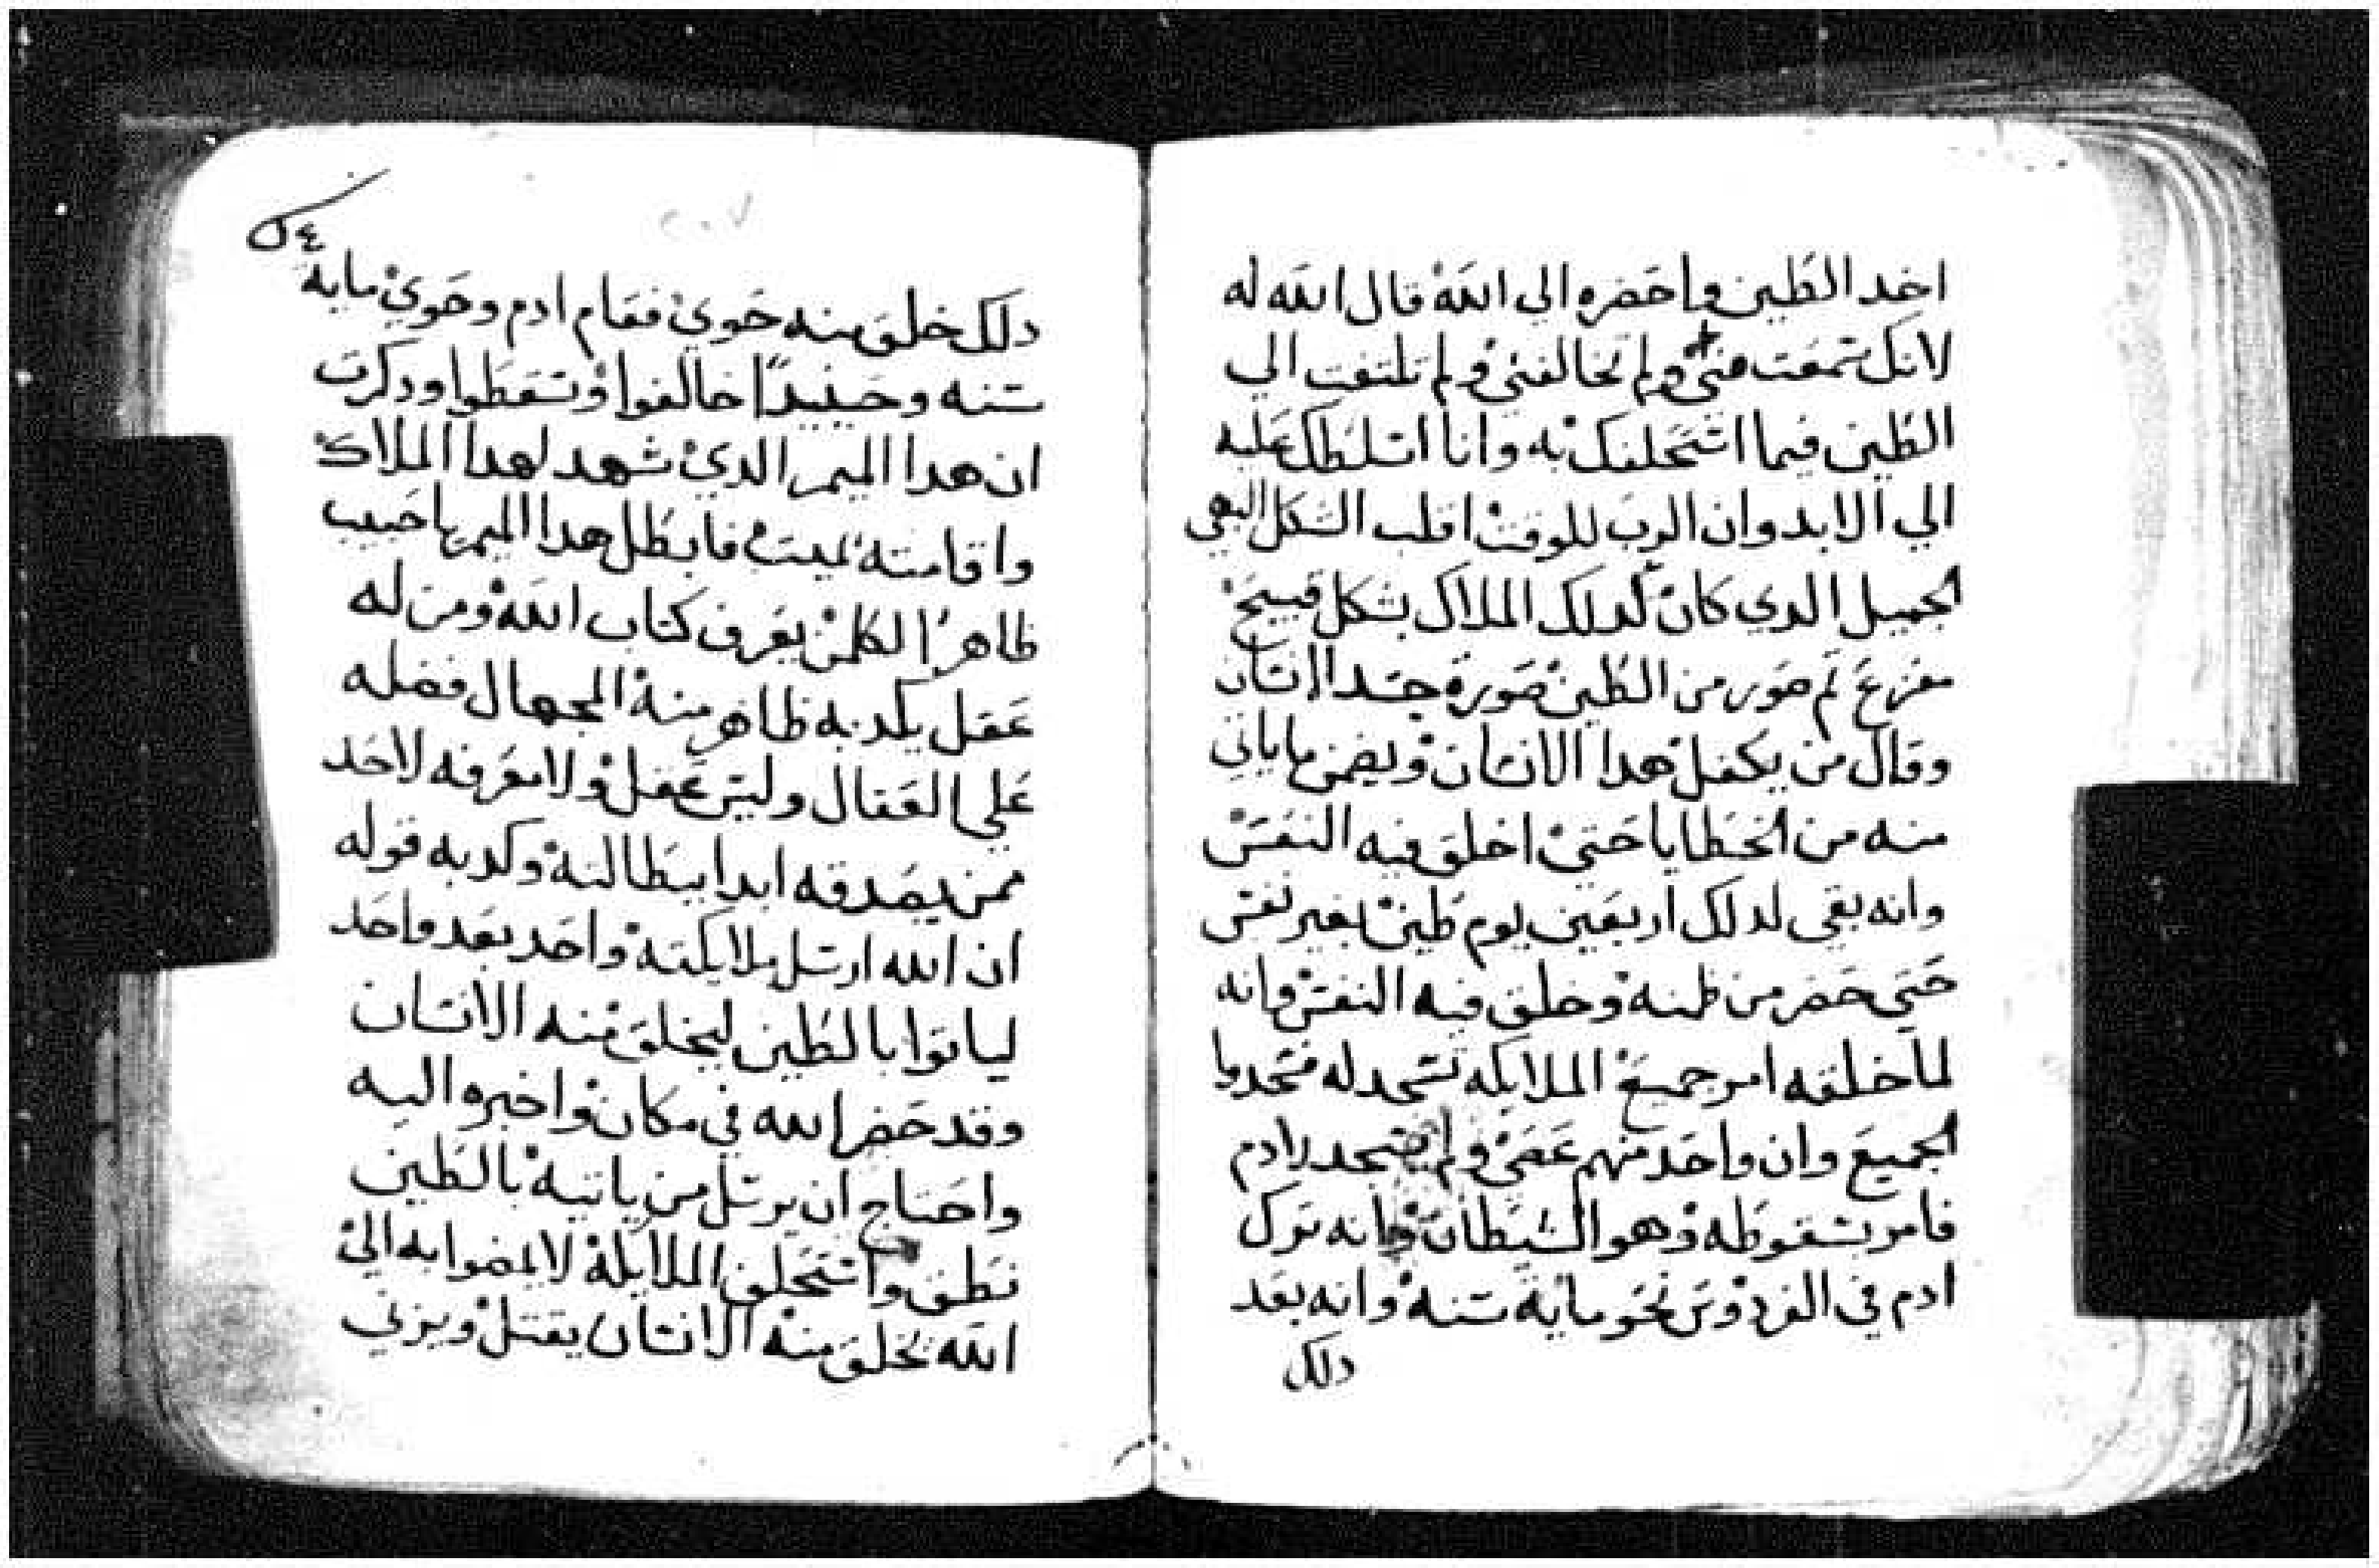 اخد الطين واحضره الي الله قال الله له
لانك سمعت مني ولم تخالفني ولم تلتفت الي
الطين فيما استحلفك به وانا اسلطك عليه
الي الابد وان الرب للوقت اقلب الشكل البهي
الجميل الدي كان لدلك الملاك بشكل قبيح
مفزع ثم صور من الطين صورة جسد الانسان
وقال من يكفل هدا الانسان ويضمن ما ياتي
منه من الخطايا حتي اخلق فيه النفس
وانه بقي لدلك اربعين يوم طين بغير نفس
حتي حضر من ظمنه وخلق فيه النفس وانه
لما خلقه امر جميع الملايكه تسجد له فسجدوا
الجميع وان واحد منهم عصي ولم يسجد لادم
فامر بسقوطه وهو الشيطان وانه ترك
ادم في الفردوس نحو ماية سنه وانه بعد
دلك
٢٠٧
دلك خلق منه حوي فقام ادم وحوي ماية
سنه وحينيدا خالفوا وسقطوا ودكرت
ان هدا الميمر الدي شهد لهدا الملاك
واقامته تميت فابطل هدا الميمر يا حبيب
ظاهرا لكلمن يعرف كتاب الله ومن له
عقل يكدبه ظاهر منه الجهال فضله
علي العقال وليس عقل ولا معرفه لاحد
ممن يصدقه ابدا ببطالته وكدبه قوله
ان الله ارسل ملايكته واحد بعد واحد
لياتوا بالطين ليخلق منه الانسان
وقد حضر الله في مكان واخبروا اليه
واحتاج ان يرسل من ياتيه بالطين
نطق واستحلف الملايكة لا يمضوا به الي
الله يخلق منه الانسان يقتل ويزني